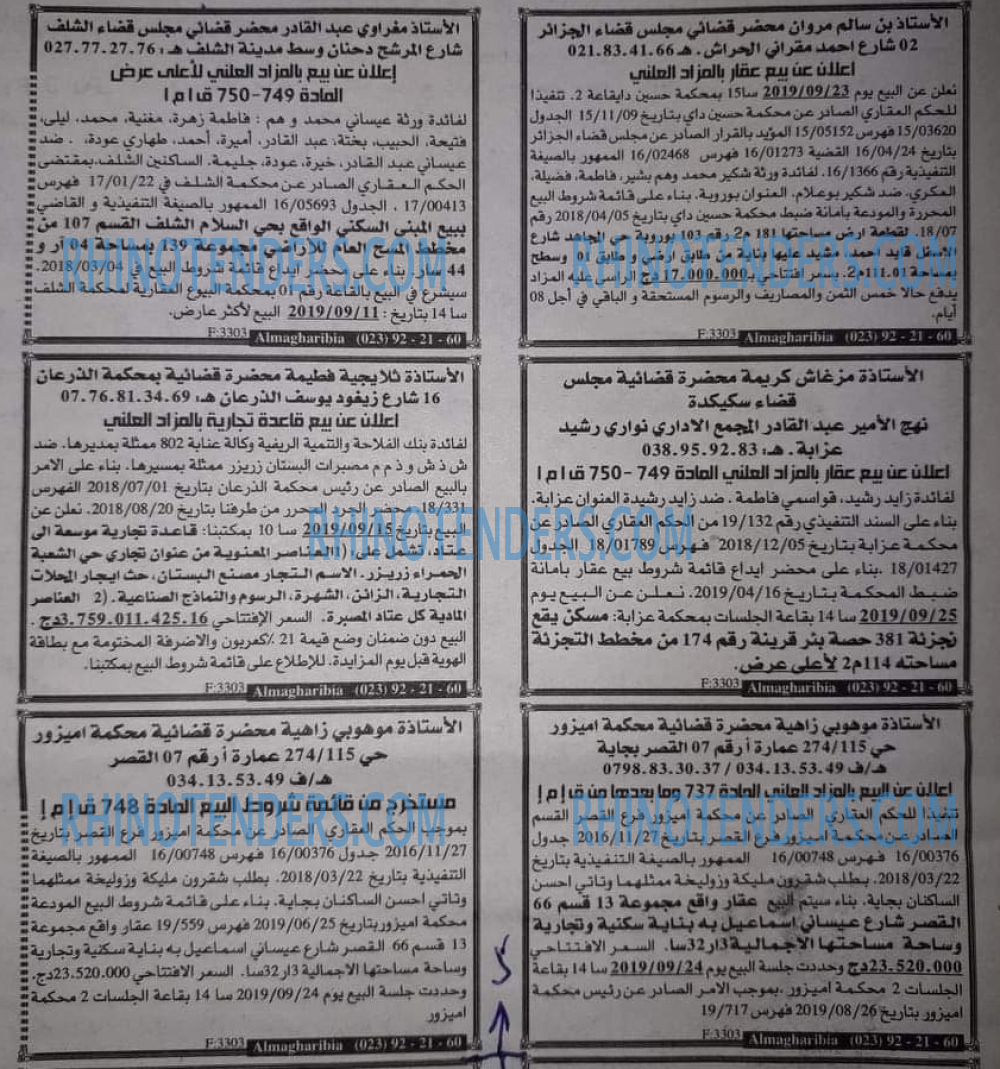 الأستاذ بن سالم مروان محضر قضائي مجلس قضاء الجزائر
02 شارع احمد مقراني الحراش. هـ 021.83.41.66
اعلان عن بيع عقار بالمزاد العلني
نعلن عن البيع يوم 2019/09/23 سا15 بمحكمة حسين دايقاعة 2. تنفيذا
للحكم العقاري الصادر عن محكمة حسين داي بتاريخ 15/11/09 الجدول
15/03620 فهرس 15/05152 المؤيد بالقرار الصادر عن مجلس قضاء الجزائر
بتاريخ 16/04/24 القضية 16/01273 فهرس 16/02468 الممهور بالصيغة
التنفيذية رقم 16/1366. لفائدة ورثة شكير محمد وهم بشير، فاطمة، فضيلة،
العكري. ضد شكير بوعلام. العنوان بوروبة. بناء على قائمة شروط البيع
المحررة والمودعة بأمانة ضبط محكمة حسين داي بتاريخ 2018/04/05 رقم
18/07. لقطعة ارض مساحتها 181 م2 رقم 103 بوروبة حي المجاهد شارع
قايد احمد مشيد عليها بناية من طابق ارضي و طابق 01 وسطح
بمساحة 111.01م2. بسعر افتتاحي بـ 17.000.000دج الراسي عليه المزاد
يدفع حالا خمس الثمن والمصاريف والرسوم المستحقة و الباقي في أجل 08
أيام.
F:3303 Almagharibia (023) 92 - 21 - 60
الأستاذ مغراوي عبد القادر محضر قضائي مجلس قضاء الشلف
شارع المرشح دحنان وسط مدينة الشلف هـ: 027.77.27.76
إعلان عن بيع بالمزاد العلني لأعلى عرض
المادة 749-750 ق ا م ا
لفائدة ورثة عيساني محمد و هم : فاطمة زهرة، مغنية، محمد، ليلى،
فتيحة، الحبيب، بختة، عبد القادر، أميرة، أحمد، طهاري عودة، . ضد
عيساني عبد القادر، خيرة، عودة، حليمة. الساكنين الشلف.بمقتضى
الحكم العقاري الصادر عن محكمة الشلف في 17/01/22 فهرس
17/00413 . الجدول 16/05693 الممهور بالصيغة التنفيذية و القاضي
ببيع المبنى السكني الواقع بحي السلام الشلف القسم 107 من
مخطط المسح العام للأراضي مجموعة 139 بمساحة 04 آر و
44 سار. بناء على محضر ايداع قائمة شروط البيع في 2018/03/04.
سيشرع في البيع بالقاعة رقم 01 بمحكمة البيوع العقارية لمحكمة الشلف
سا 14 بتاريخ : 2019/09/11 البيع لأكثر عارض.
F:3303 Almagharibia (023) 92 - 21 - 60
الأستاذة مزغاش كريمة محضرة قضائية مجلس
قضاء سكيكدة
نهج الأمير عبد القادر المجمع الاداري نواري رشيد
عزابة. هـ: 038.95.92.83
اعلان عن بيع عقار بالمزاد العلني المادة 749 -750 ق ا م ا
لفائدة زايد رشيد، قواسمي فاطمة . ضد زايد رشيدة العنوان عزابة.
بناء على السند التنفيذي رقم 19/132 من الحكم العقاري الصادر عن
محكمة عزابة بتاريخ 2018/12/05 فهرس 18/01789 الجدول
18/01427 .بناء على محضر ايداع قائمة شروط بيع عقار بأمانة
ضبط المحكمة بتاريخ 2019/04/16. نعلن عن البيع يوم
2019/09/25 سا 14 بقاعة الجلسات بمحكمة عزابة: مسكن يقع
بتجزئة 381 حصة بئر قرينة رقم 174 من مخطط التجزئة
مساحته 114م2 لأعلى عرض.
F:3303 Almagharibia (023) 92 - 21 - 60
الأستاذة ثلايجية فطيمة محضرة قضائية بمحكمة الذرعان
16 شارع زيغود يوسف الذرعان هـ: 07.76.81.34.69
اعلان عن بيع قاعدة تجارية بالمزاد العلني
لفائدة بنك الفلاحة والتنمية الريفية وكالة عنابة 802 ممثلة بمديرها. ضد
ش ذ ش و ذ م م مصبرات البستان زريزر ممثلة بمسيرها. بناء على الامر
بالبيع الصادر عن رئيس محكمة الذرعان بتاريخ 2018/07/01 الفهرس
18/331 محضر الجرد المحرر من طرفنا بتاريخ 2018/08/20. نعلن عن
البيع بتاريخ 2019/09/15 سا 10 بمكتبنا: قاعدة تجارية موسعة الى
عتاد، تشمل على: 1) العناصر المعنوية من عنوان تجاري حي الشعبة
الحمراء زريزر. الاسم التجار مصنع البستان، حث ايجار المحلات
التجارية، الزائن، الشهرة، الرسوم والنماذج الصناعية. 2) العناصر
المادية كل عتاد المصبرة. السعر الإفتتاحي 3.759.011.425.16دج.
البيع دون ضمنان وضع قيمة 21 ٪كعربون والاضرفة المختومة مع بطاقة
الهوية قبل يوم المزايدة. للإطلاع على قائمة شروط البيع بمكتبنا.
F:3303 Almagharibia (023) 92 - 21 - 60
الأستاذة موهوبي زاهية محضرة قضائية محكمة اميزور
حي 274/115 عمارة أ رقم 07 القصر بجاية
هـ/ف 034.13.53.49 / 0798.83.30.37
اعلان عن البيع بالمزاد العلني المادة 737 وما بعدها من ق إ م إ
تنفيذا للحكم العقاري الصادر عن محكمة اميزور فرع القصر القسم
الصادر عن محكمة اميزور فرع القصر بتاريخ 2016/11/27 جدول
16/00376 فهرس 16/00748 الممهور بالصيغة التنفيذية بتاريخ
2018/03/22. بطلب شقرون مليكة وزوليخة ممثلهما وتاتي احسن
الساكنان بجاية. بناء سيتم البيع عقار واقع مجموعة 13 قسم 66
القصر شارع عيساني اسماعيل به بناية سكنية وتجارية
وساحة مساحتها الاجمالية 3ار32سا. السعر الافتتاحي
23.520.000دج وحددت جلسة البيع يوم 2019/09/24 سا 14 بقاعة
الجلسات 2 محكمة اميزور .بموجب الامر الصادر عن رئيس محكمة
اميزور بتاريخ 2019/08/26 فهرس 19/717
F:3303 Almagharibia (023) 92 - 21 - 60
الأستاذة موهوبي زاهية محضرة قضائية محكمة اميزور
حي 274/115 عمارة أ رقم 07 القصر
هـ/ف 034.13.53.49
مستخرج من قائمة شروط البيع المادة 748 ق إ م إ
بموجب الحكم العقاري الصادر عن محكمة اميزور فرع القصر بتاريخ
2016/11/27 جدول 16/00376 فهرس 16/00748 الممهور بالصيغة
التنفيذية بتاريخ 2018/03/22. بطلب شقرون مليكة وزوليخة ممثلهما
وتاتي احسن الساكنان بجاية. بناء على قائمة شروط البيع المودعة
محكمة اميزور بتاريخ 2019/06/25 فهرس 19/559 عقار واقع مجموعة
13 قسم 66 القصر شارع عيساني اسماعيل به بناية سكنية وتجارية
وساحة مساحتها الاجمالية 3ار32سا. السعر الافتتاحي 23.520.000دج.
وحددت جلسة البيع يوم 2019/09/24 سا 14 بقاعة الجلسات 2 محكمة
اميزور
F:3303 Almagharibia (023) 92 - 21 - 60
RHINOTENDERS.COM
RHINOTENDERS.COM
RHINOTENDERS.COM
RHINOTENDERS.COM
RHINOTENDERS.COM